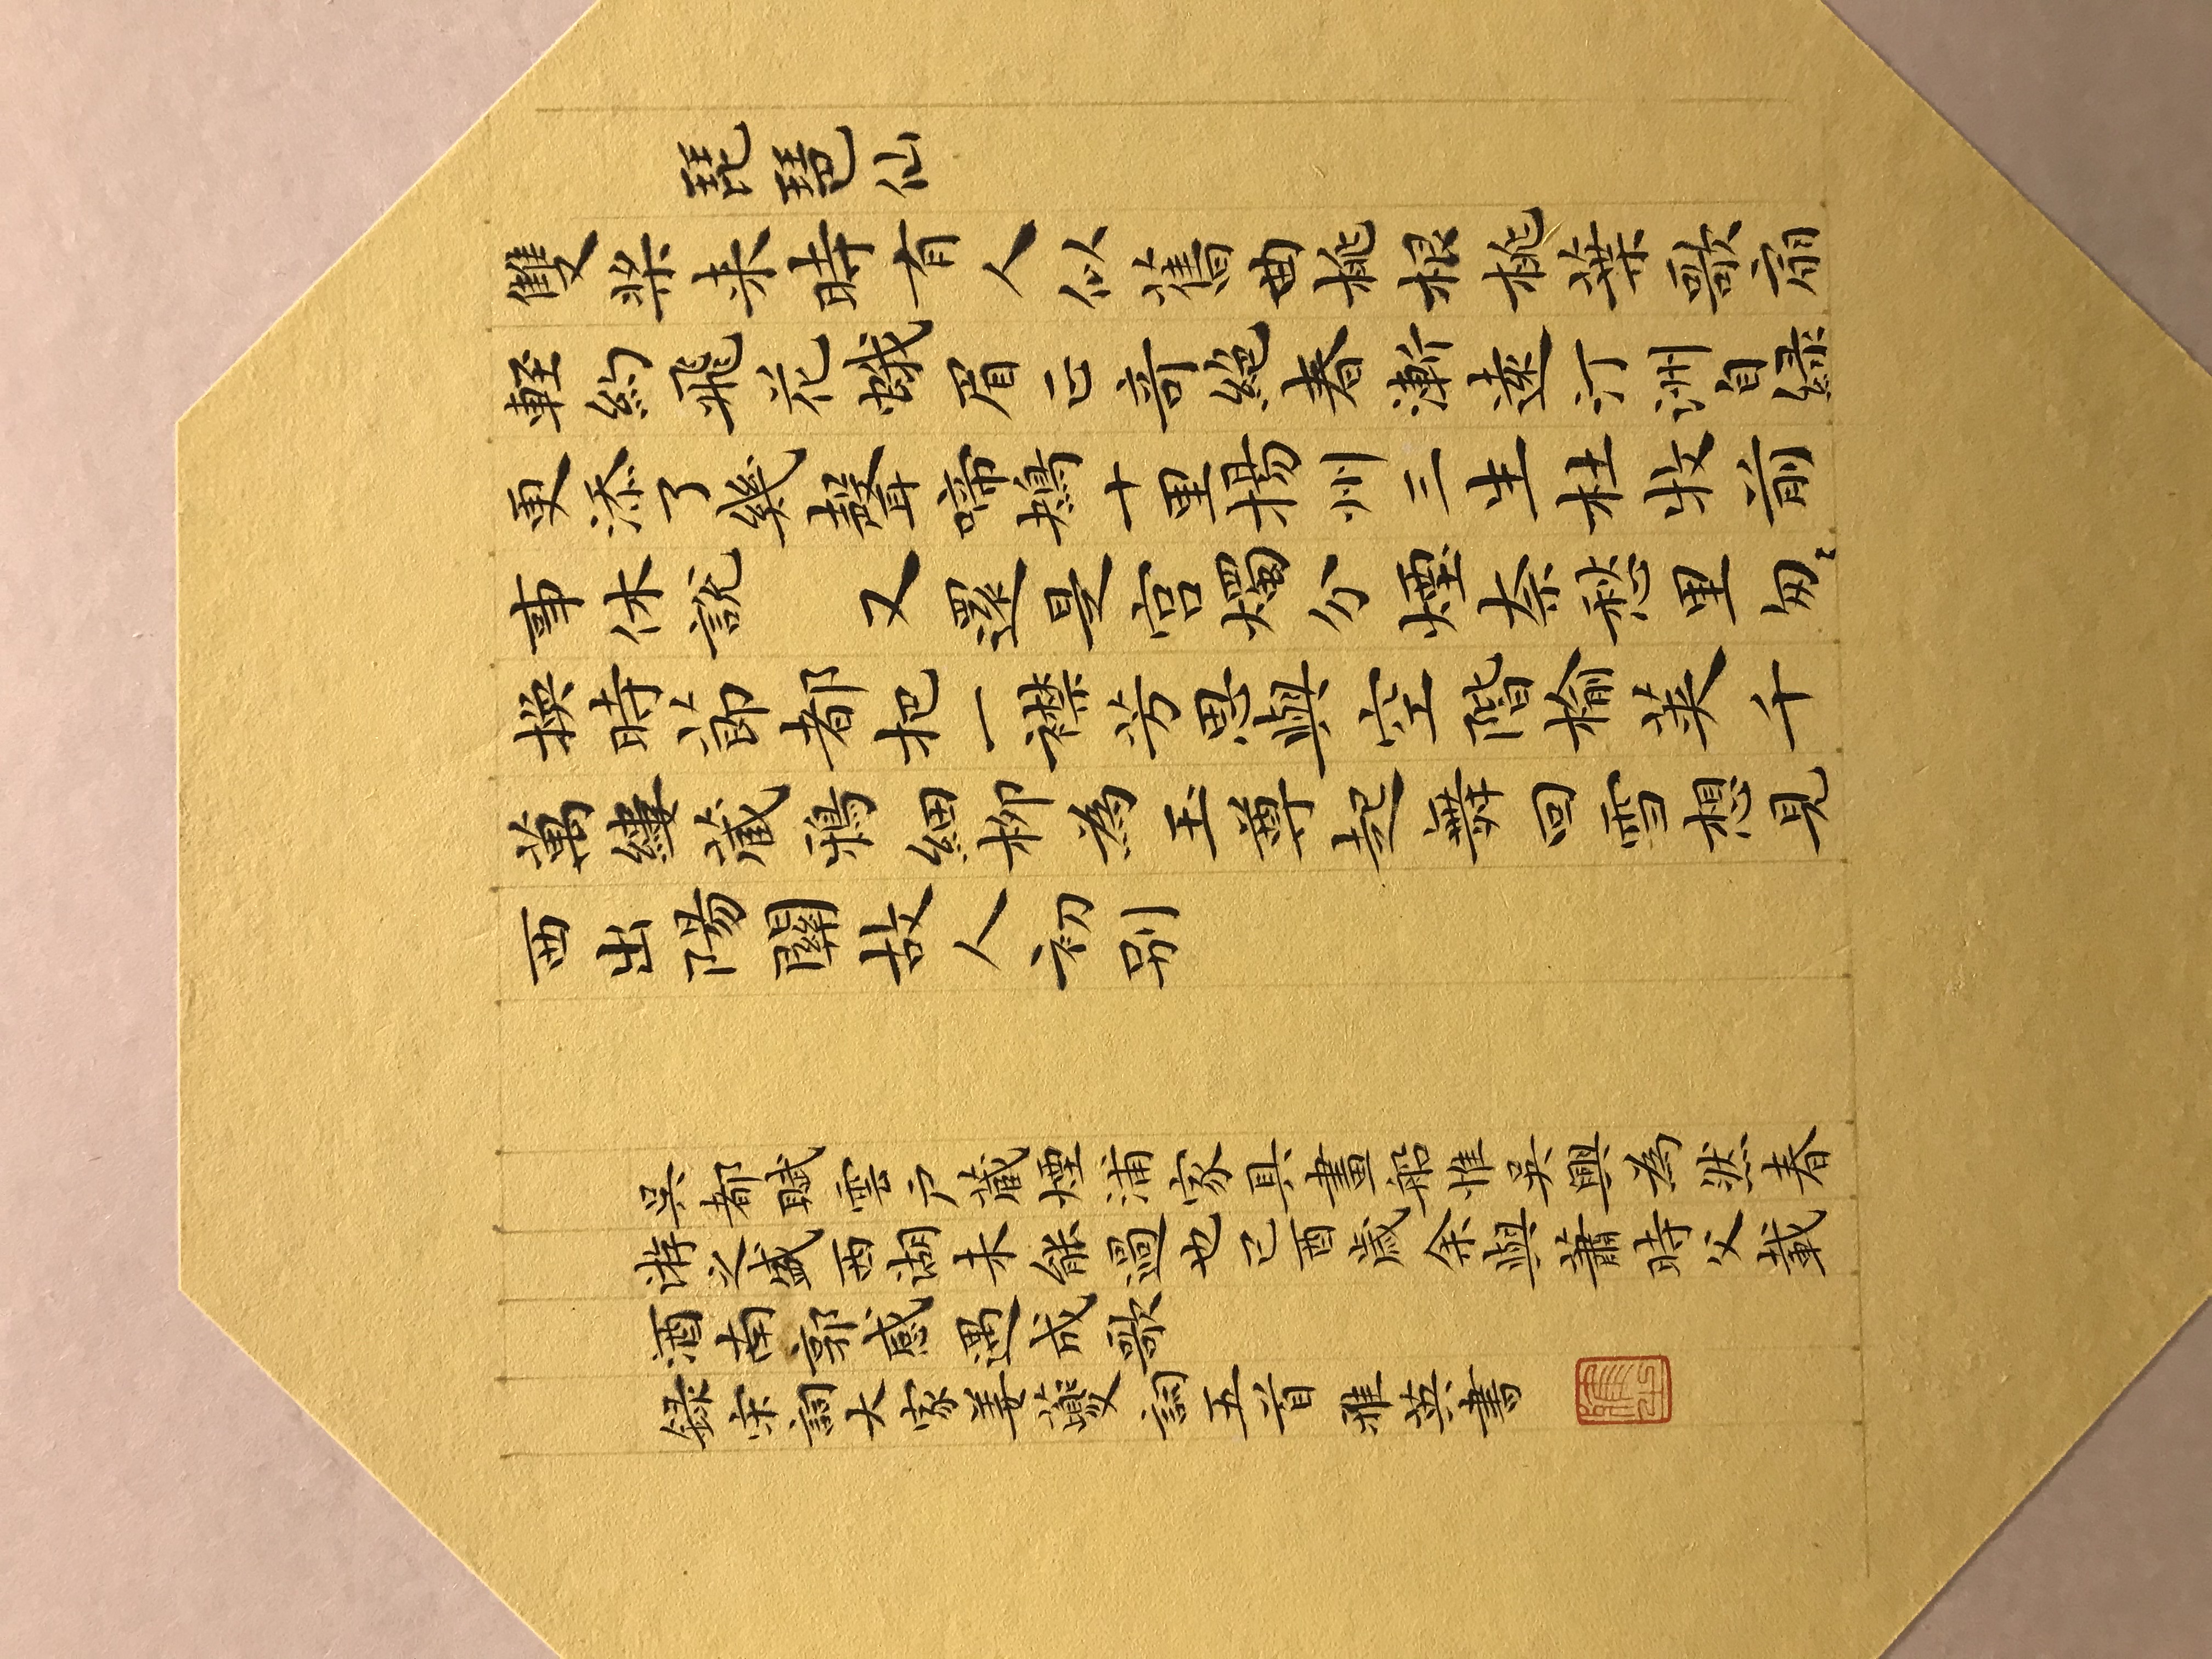 琵琶仙
雙槳来時有人似舊曲桃根桃葉歌扇
輕約飛花蛾眉正奇絕春漸遠汀洲自緑
更添了幾聲啼鴂十里揚州三生杜牧前
事休說 又還是宮燭分煙奈愁里匆〻
換時節都把一襟芳思與空階榆荚千
萬縷藏鴉細柳為玉尊起舞回雪想見
西出陽關故人初别
吳都賦雲户藏煙浦家具畫船惟吳興為然春
游之盛西湖未能過也己酉歲余與蕭時父載
酒南郭感遇成歌
録宋詞大家姜夔詞五首雅英書